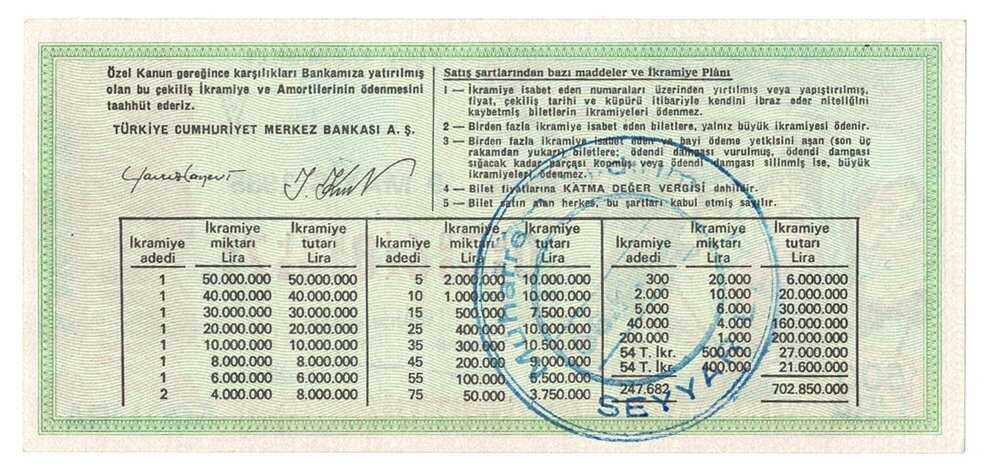 Özel Kanun gereğince karşılıkları Bankamıza yatırılmış
olan bu çekiliş İkramiye ve Amortilerinin ödenmesini
taahhüt ederiz.
TÜRKİYE CUMHURİYET MERKEZ BANKASI A. Ş.
Satış şartlarından bazı maddeler ve İkramiye Plânı
1 — İkramiye isabet eden numaraları üzerinden yırtılmış veya yapıştırılmış,
fiyat, çekiliş tarihi ve küpürü itibariyle kendini ibraz eder niteliğini
kaybetmiş biletlerin ikramiyeleri ödenmez.
2 — Birden fazla ikramiye isabet eden biletlere, yalnız büyük ikramiyesi ödenir.
3 — Birden fazla ikramiye isabet eden ve bayi ödeme yetkisini aşan (son üç
rakamdan yukarı) biletlere; ödendi damgası vurulmuş, ödendi damgası
sığacak kadar parçası kopmuş veya ödendi damgası silinmiş ise, büyük
ikramiyeleri ödenmez.
4 — Bilet fiyatlarına KATMA DEĞER VERGİSİ dahildir.
5 — Bilet satın alan herkes, bu şartları kabul etmiş sayılır.
İkramiye adedi İkramiye miktarı Lira İkramiye tutarı Lira
1 50.000.000 50.000.000
1 40.000.000 40.000.000
1 30.000.000 30.000.000
1 20.000.000 20.000.000
1 10.000.000 10.000.000
1 8.000.000 8.000.000
1 6.000.000 6.000.000
2 4.000.000 8.000.000
İkramiye adedi İkramiye miktarı Lira İkramiye tutarı Lira
5 2.000.000 10.000.000
10 1.000.000 10.000.000
15 500.000 7.500.000
25 400.000 10.000.000
35 300.000 10.500.000
45 200.000 9.000.000
55 100.000 5.500.000
75 50.000 3.750.000
İkramiye adedi İkramiye miktarı Lira İkramiye tutarı Lira
300 20.000 6.000.000
2.000 10.000 20.000.000
5.000 6.000 30.000.000
40.000 4.000 160.000.000
200.000 1.000 200.000.000
54 T. İkr. 500.000 27.000.000
54 T. İkr. 400.000 21.600.000
247.682 702.850.000
SEYYAR